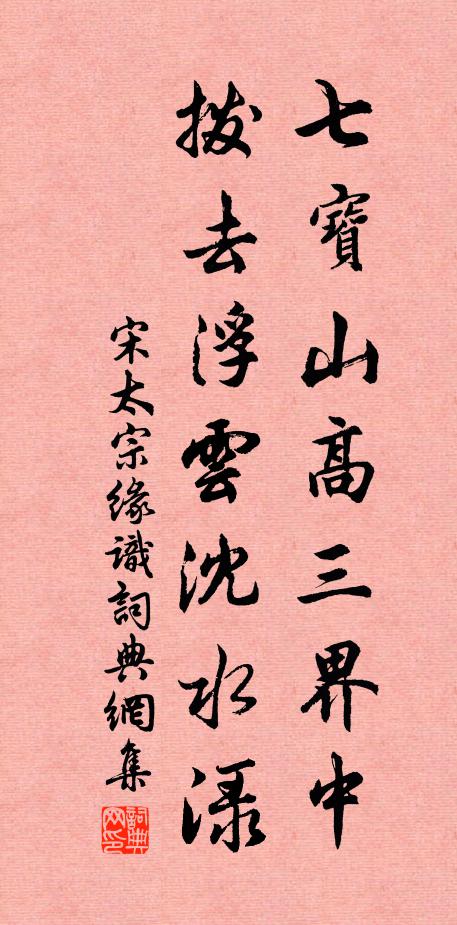 七寶山高三界中
撥去浮雲沈水渌
宋太宗緣識詞典網集
詞典网印